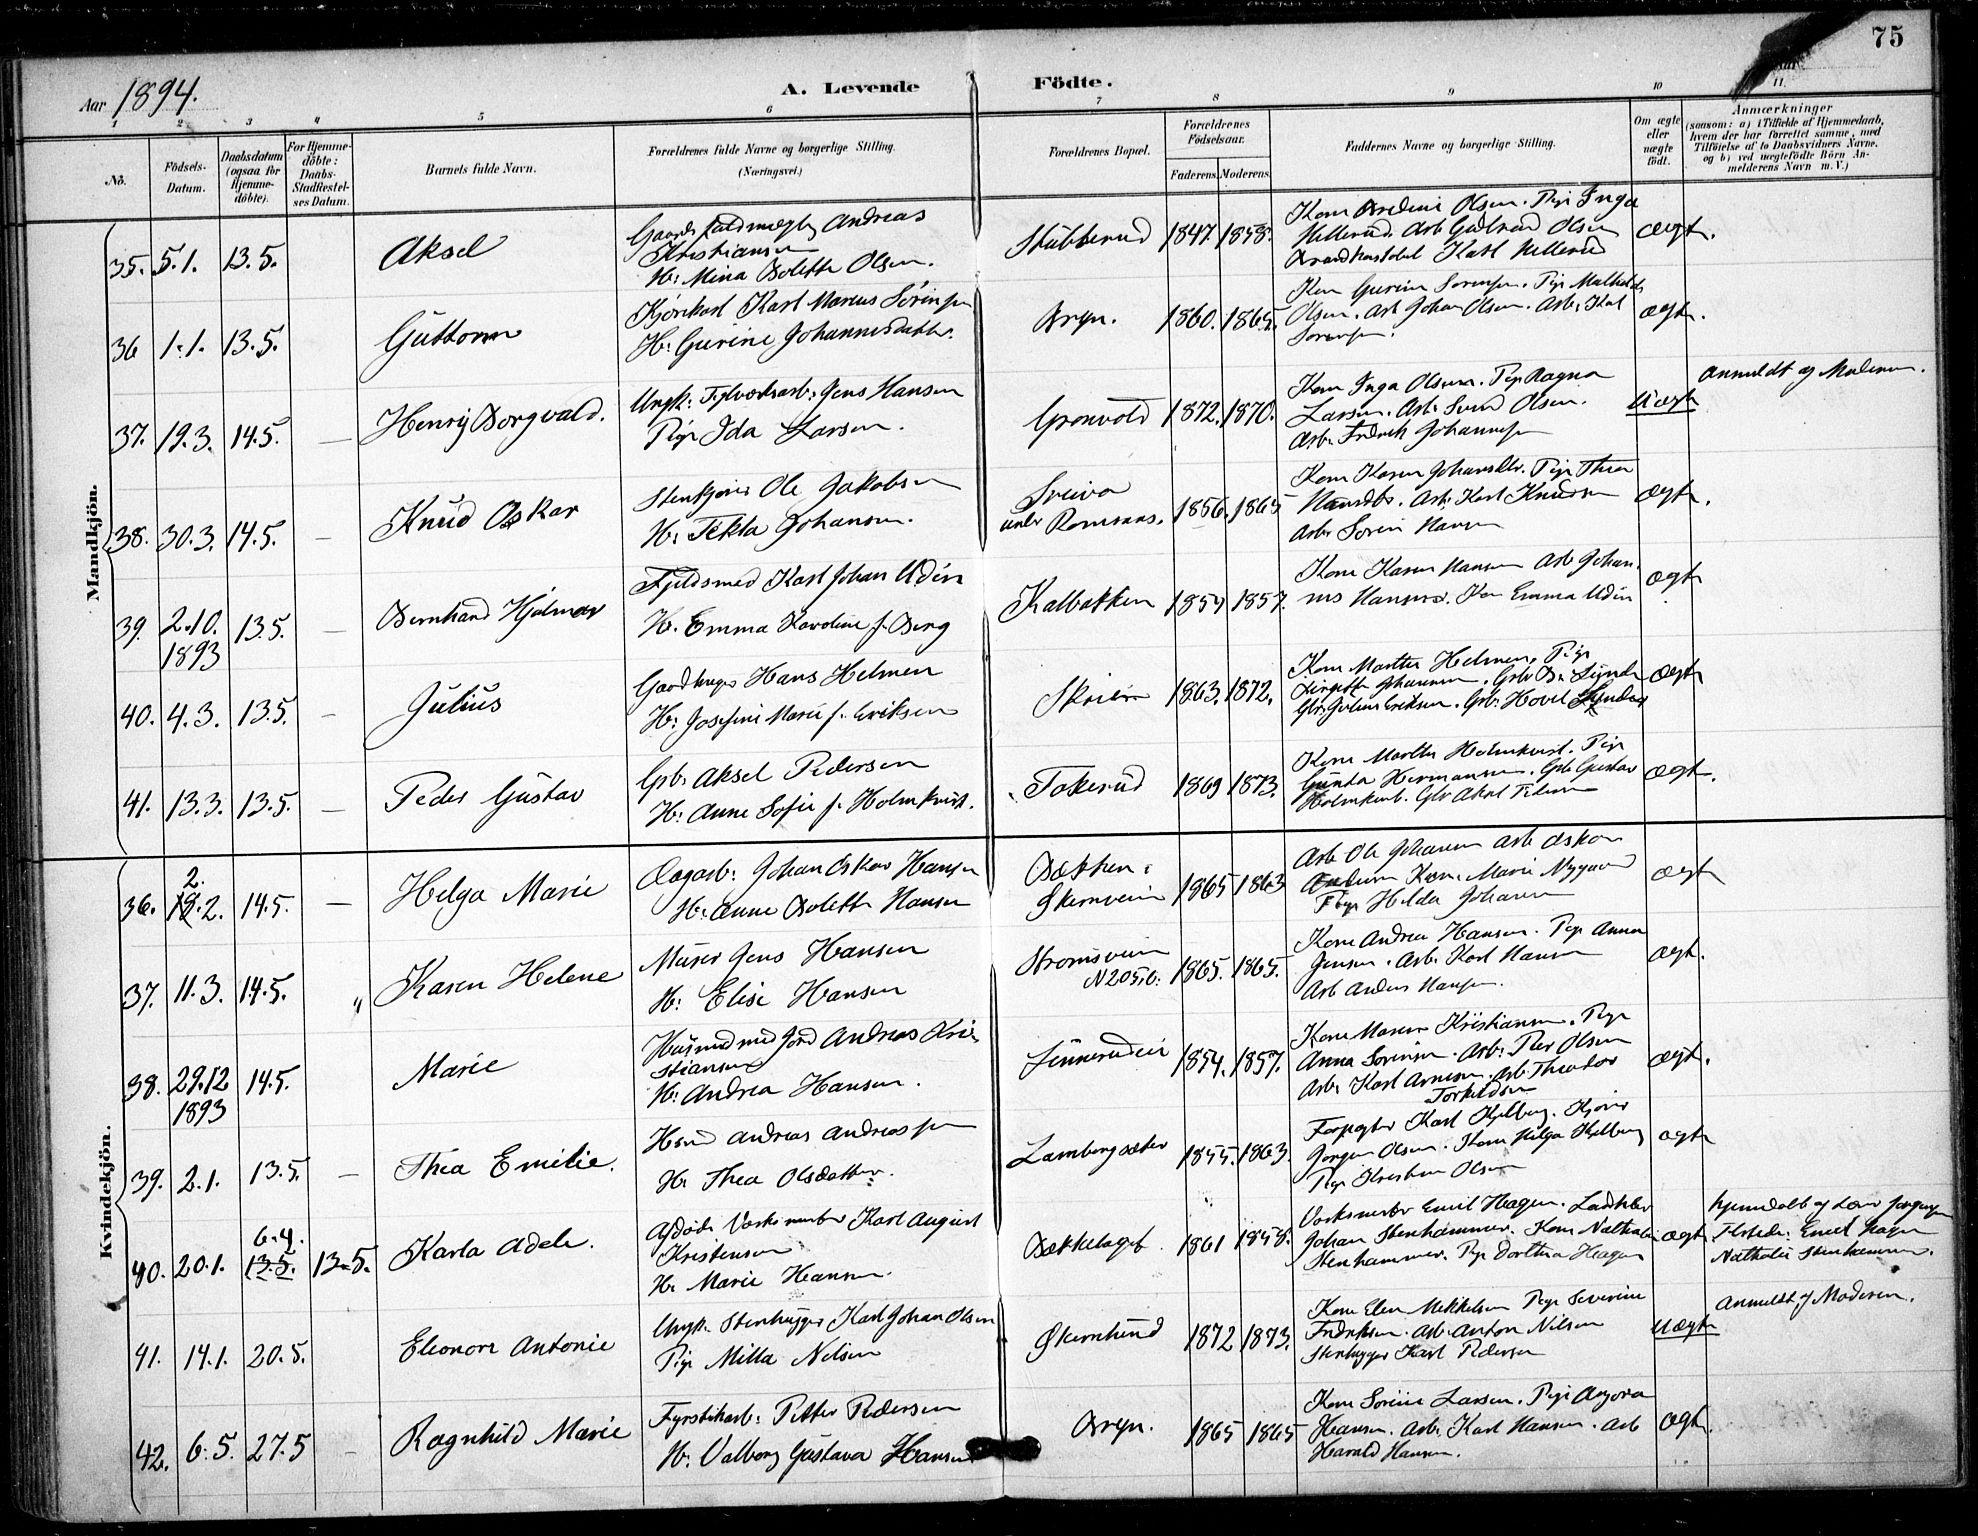 75
Aar 1894.
A. Levende Födte.
1 2 3 4 5 6 7 8 9 10 11.
No.
Födsels-Datum.
Daabsdatum (ogsaa for Hjemme-döbte).
For Hjemme-döbte: Daabs-Stadfæstel-ses Datum.
Barnets fulde Navn.
Forældrenes fulde Navne og borgerlige Stilling.
(Næringsvei.)
Forældrenes Bopæl.
Forældrenes Födselsaar.
Faderens. Moderens.
Faddernes Navne og borgerlige Stilling.
Om ægte eller uægte födt.
Anmærkninger
(saasom: a) i Tilfælde af Hjemmedaab,
hvem der har forrettet samme, med
Tilföielse af to Daabsvidners Navne.
og b) ved uægtefödte Börn An-
melderens Navn m. V.)
Mandkjön.
35. 5.1. 13.5. Aksel
Andreas
Kristiansen
H: Mina Bolette Olsen.
Stubberud 1847. 1858.
Olsen. Pige Inga
Hellerud. Arb Gudbrand Olsen
Karl Hellerud
Ægte.
36 1.1. 13.5. Guttorm
Kjørekarl Karl Marcus Sörensen
H: Gurine Johannesdatter.
Bryn. 1860. 1865.
Kone Gurine Sorensen. Pige Mathilde
Olsen. Arb Johan Olsen. Arb: Karl
Sorensen.
Ægte.
37. 19.3. 14.5. — Henry Borgvald.
Ungk: Teglværksarb: Jens Hansen
Pige Ida Larsen.
Grønvold 1872. 1870.
Kone Inga Olsen. Pige Ragna
Larsen. Arb: Olsen.
Arb: Fredrik Johannesen
Uægte
Anmeldt af Moderen.
38. 30.3. 14.5. — Knud Oskar
Stenkjører Ole Jakobsen
H: Tekla Johansen.
under Romsaas. 1856. 1865
Kone Karen Johansdtr. Pige Thea
Hansdtr. Arb: Karl Knudsen
Arb: Soren Hansen
Ægte.
39. 2.10. 1893 13.5. — Bernhard Hjalmar
Karl Johan Udén
H. Emma Karoline f. Berg
Kalbakken 1854 1857.
Kone Karen Hansen Arb Johan-
nes Hansen. Kone Emma Udén
Ægte
40. 4.3. 13.5. — Julius
Gaardbruger Hans Helmen
H: Josefine Marie f. Eriksen
1863. 1872.
Kone Marthe Helmen, Pige
Johannesen. Gbr
Gbr: Julius Eriksen. Gbr:
Ægte
41. 13.3. 13.5. — Peder Gustav
Gbr: Aksel Pedersen
H: Anne Sofie f. Holmkvist.
Tokerud 1869 1873.
Kone Marthe Holmkvist. Pige
Hermansen. Gbr Gustav
Holmkvist. Gbr Aksel Pedersen
Ægte.
Kvindekjön.
36. 2. 2. 14.5. — Helga Marie
Dagarb: Johan Oskar Hansen
H: Anne Bolette Hansen
Bakken: Økernveien 1865 1863
Arb Ole Johansen Arb Oskar
Andersen Kone: Marie Nygaard
Pige Hilda Johansen
Ægte
37. 11.3. 14.5. „ Karen Helene
Murer Jens Hansen
H: Elise Hansen
Strømsveien N 205 b. 1865. 1865.
Kone Andrea Hansen. Pige Anna
Jensen. Arb. Karl Hansen
Arb Anders Hansen.
Ægte.
38. 29.12 1893 14.5. Marie
Husmand med Jord Andreas Kri-
stiansen
H: Andrea Hansen.
1854. 1857.
Kone Maren Kristiansen. Pige
Anna Sorensen. Arb: Peer Olsen
Arb: Karl Arnesen. Arb Theodor
Torkildsen
Ægte.
39. 2.1. 13.5. — Thea Emilie.
Andreas Andreassen
H. Thea Olsdatter.
Lambergsæter 1855. 1863.
Forpagter Karl Kjelberg. Kjører
Jørgen Olsen. Kone Helga Kjelberg
Pige Olsen
Ægte
40. 20.1. 6.4. 13.5. 13.5. Karla Adele.
Afdøde Karl August
Kristensen
H. Marie Hansen.
Bækkelaget 1861 1858.
Værksmester Emil Hagen.
Johan Stenhammer. Kone Nathalie
Stenhammer. Pige Dorthea Hagen
Ægte
Hjemmedøbt af
Tilstede: Emil Hagen
Nathalie Stenhammer.
41. 14.1. 20.5. Eleonore Antonie
Ungk. Stenhugger Karl Johan Olsen
Pige Milla Nelsen
Økernlund 1872 1873.
Kone Elen Mikkelsen Pige Severine
Fredriksen. Arb: Anton Nilsen
Stenhugger Karl Pedersen
Uægte
Anmeldt af Moderen.
42. 6.5. 27.5 — Ragnhild Marie
Fyrstikarb: Petter Pedersen
H: Valborg Gustava Hansen
Bryn. 1865 1865
Kone Sorine Larsen. Pige
Hansen. Arb. Karl Hansen. Arb
Harald Hansen.
Ægte.